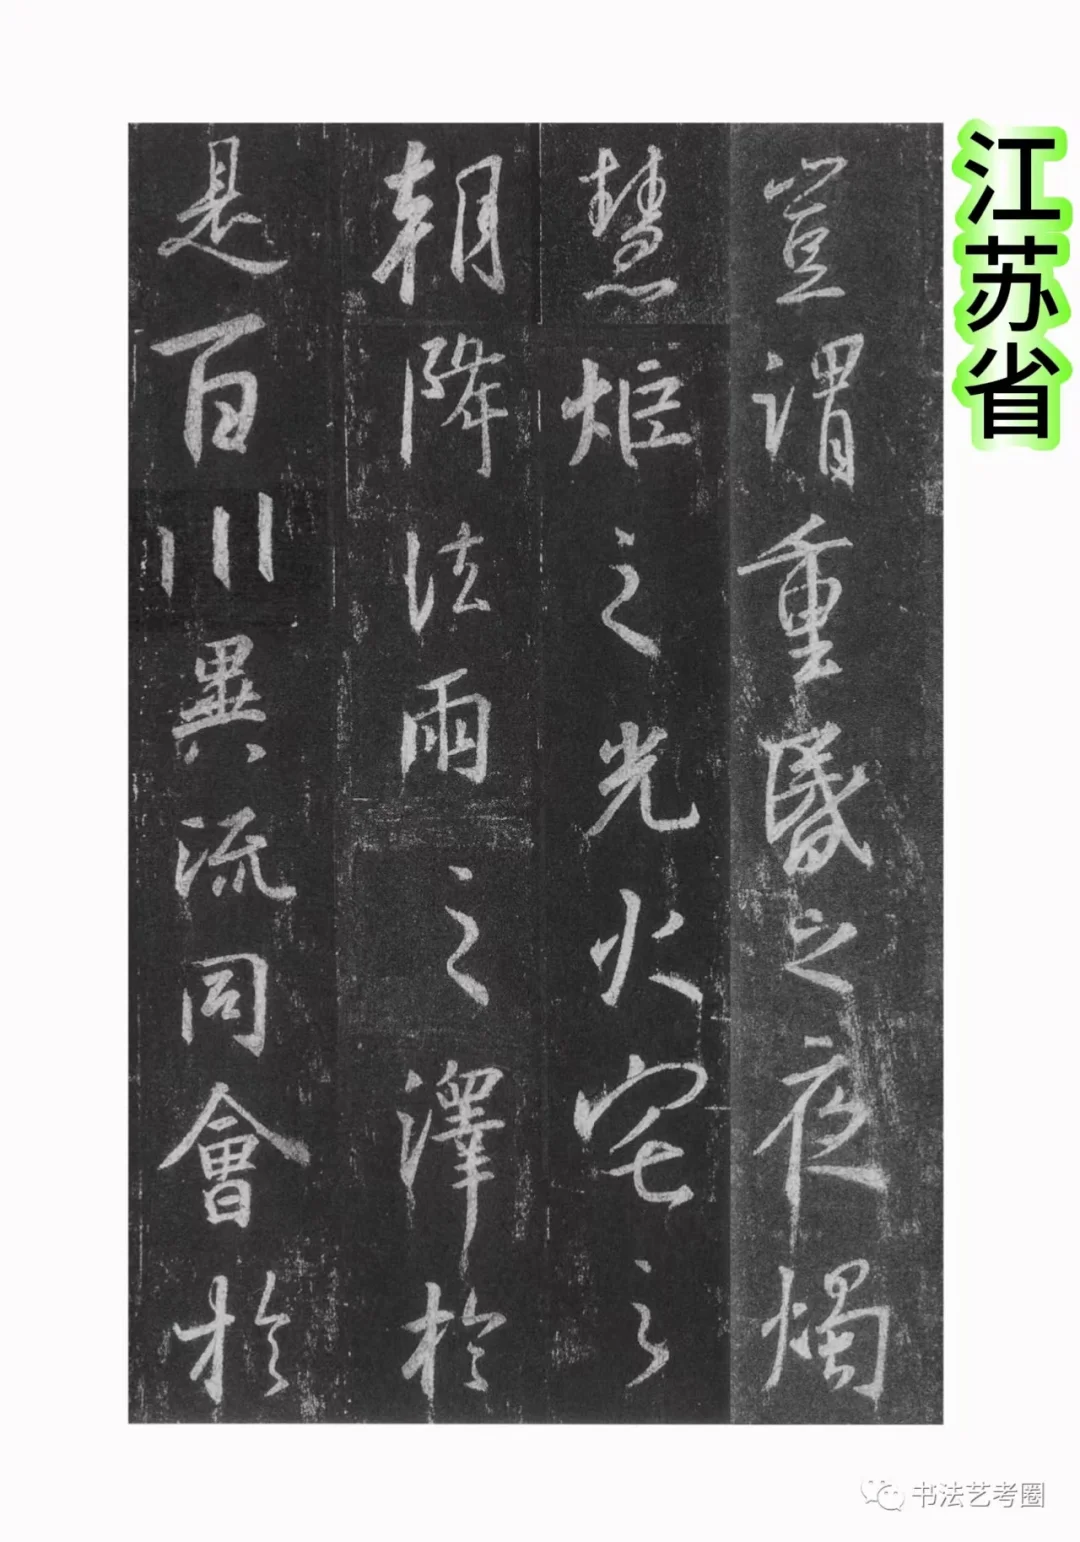 江苏省
豈謂重昏之夜燭
慧炬之光火宅之
朝降法雨之澤於
是百川異流同會於
书法艺考圈